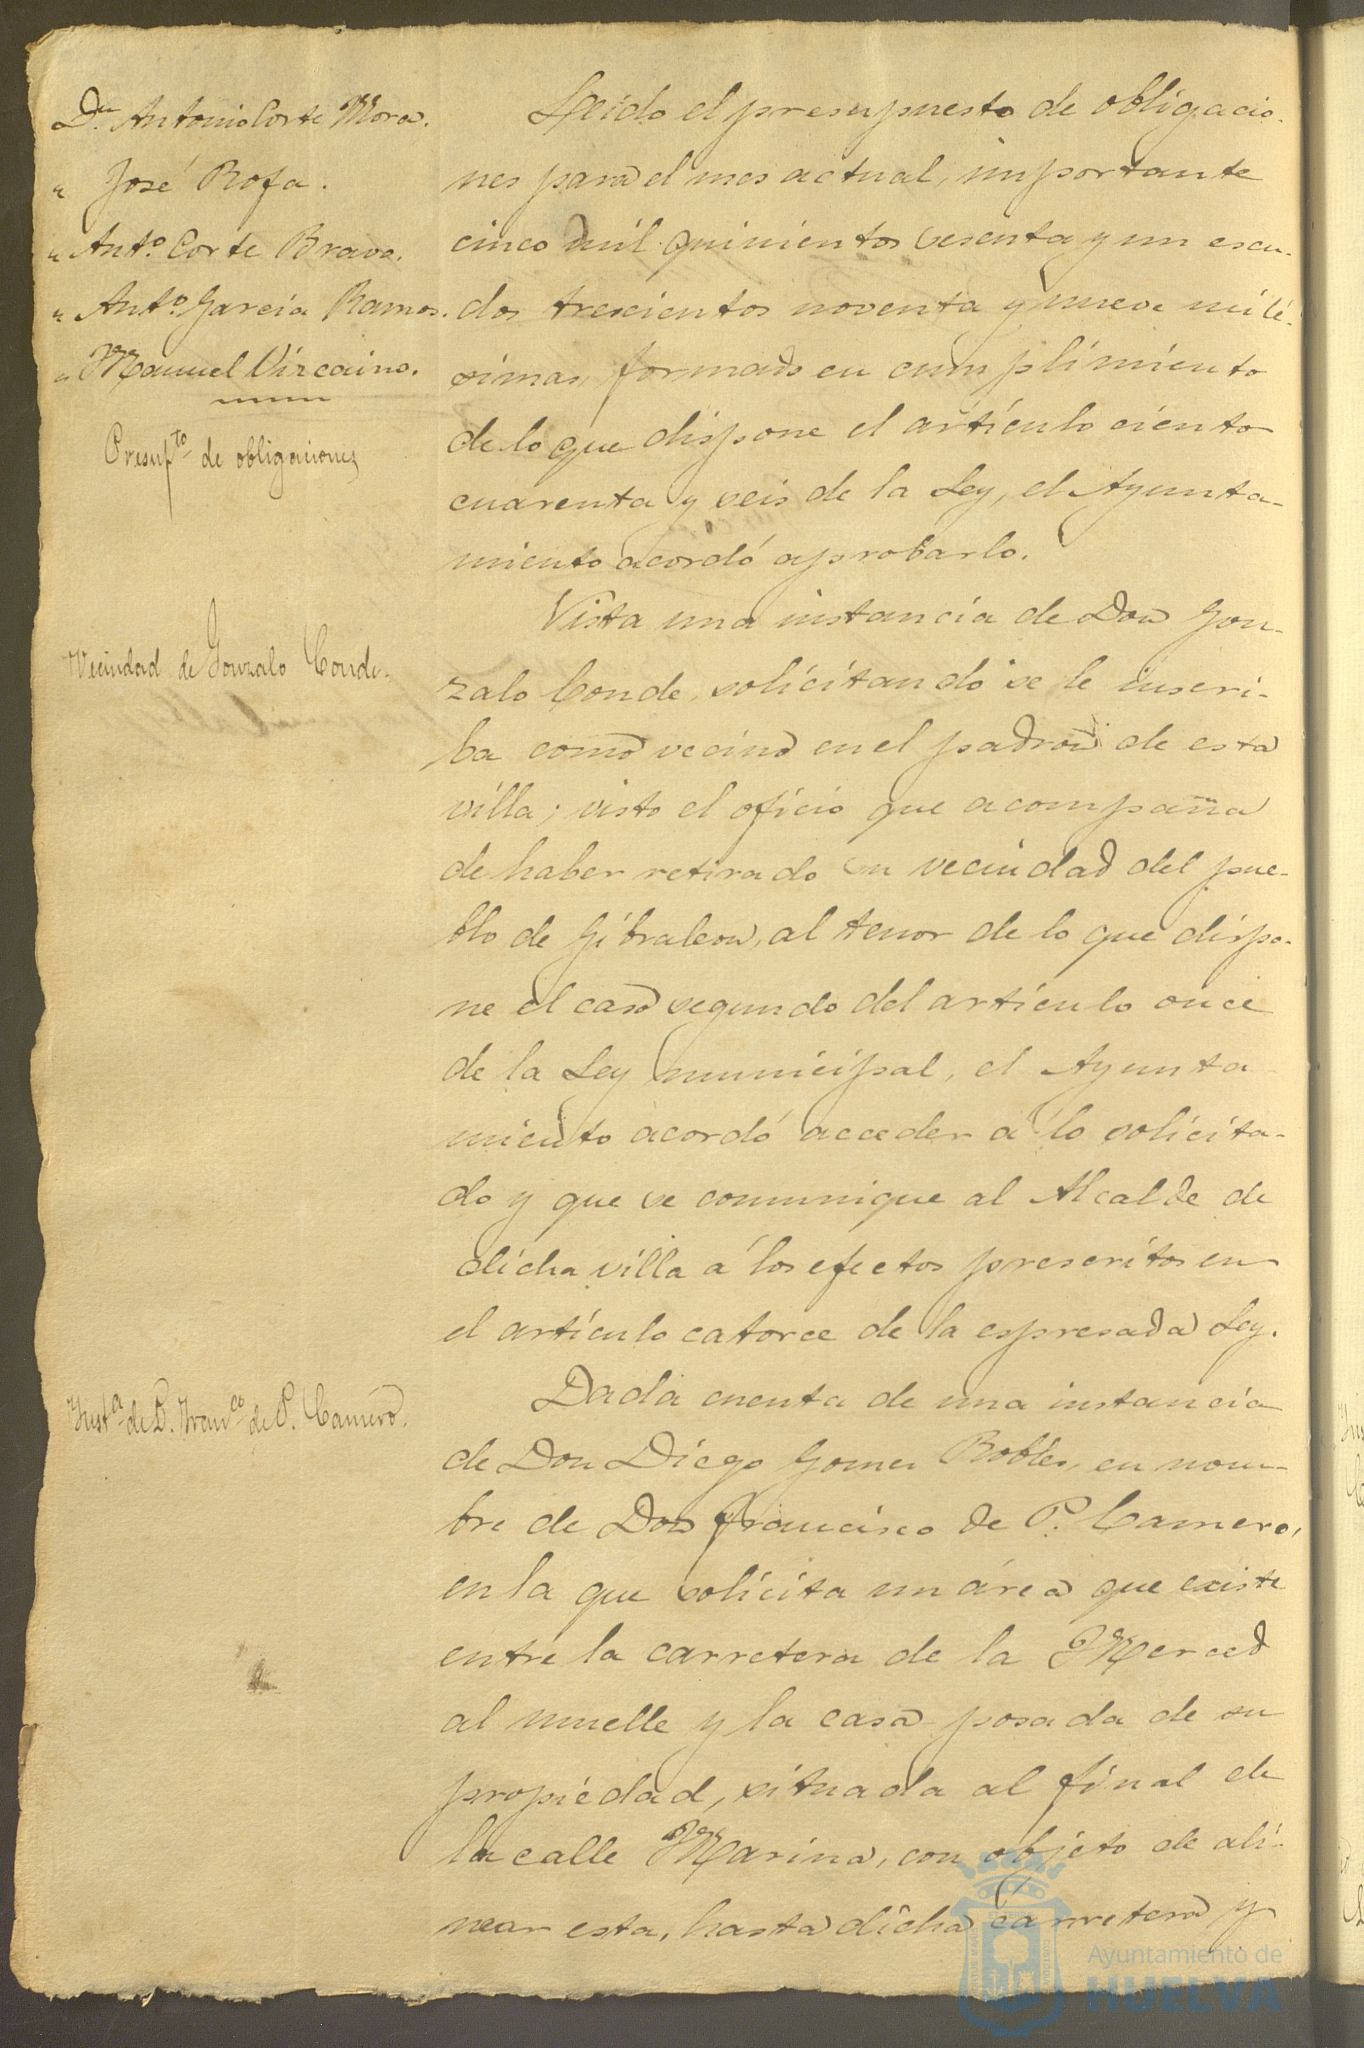 Dn. Antonio Corte Mora.
" José Rofa.
" Anto. Corte Bravo.
" Anto. García Ramos.
" Manuel Vizcaino.
Presupto. de obligaciones
Leido el presupuesto de obligacio-
nes para el mes actual, importante
cinco mil quinientos sesenta y un escu-
dos trescientos noventa y nueve milé-
simas, formado en cumplimiento
de lo que dispone el artículo ciento
cuarenta y seis de la Ley, el Ayunta-
miento acordó aprobarlo.
Vecindad de Gonzalo Conde.
Vista una instancia de Don Gon-
zalo Conde, solicitando se le inscri-
ba como vecino en el padron de esta
villa; visto el oficio que acompaña
de haber retirado su vecindad del pue-
blo de Gibraleon, al tenor de lo que dispo-
ne el caso segundo del artículo once
de la Ley municipal, el Ayunta
miento acordó acceder á lo solicita-
do y que se comunique al Alcalde de
dicha villa á los efectos prescritos en
el artículo catorce de la espresada Ley.
Insta. de D. Franco. de P. Camero.
Dada cuenta de una instancia
de Don Diego Gomez Robles, en nom-
bre de Don Francisco de P. Camero,
en la que solicita un área que existe
entre la carretera de la Merced
al muelle y la casa posada de su
propiedad, situada al final de
la calle Marina, con objeto de ali-
near esta, hasta dicha carretera y
Ayuntamiento de
HUELVA